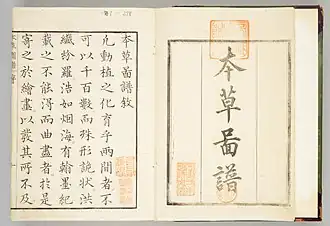 本草啚譜
本草啚譜敘
凢動植之化育乎兩間者不
可以千百數而殊形詭状洪
纎紛羅浩如烟海有翰墨紀
載之不能得而曲盡者於是
寄之於繪畫以發其所不及